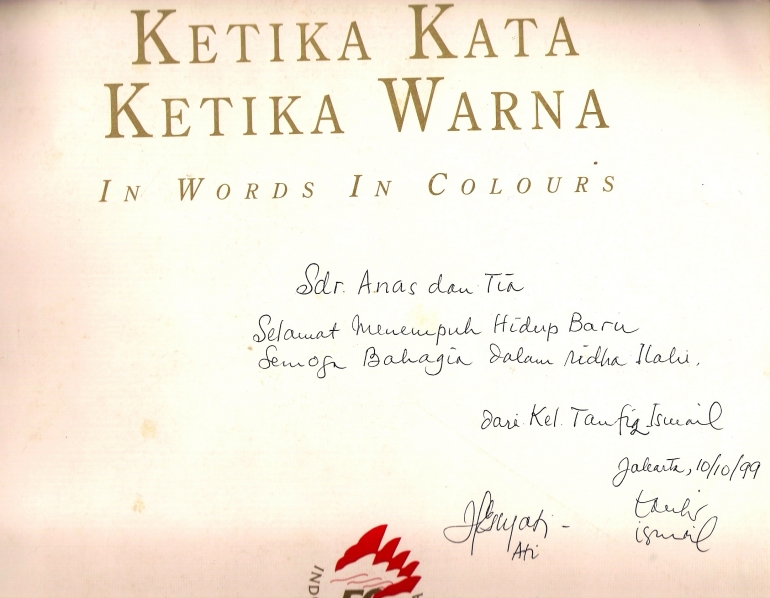 KETIKA KATA
KETIKA WARNA
IN WORDS IN COLOURS
Sdr. Anas dan Tia
Selamat Menempuh Hidup Baru
Semoga Bahagia dalam ridha Ilahi.
dari Kel. Taufiq Ismail
Jakarta, 10/10/99
taufiq
ismail
Ati